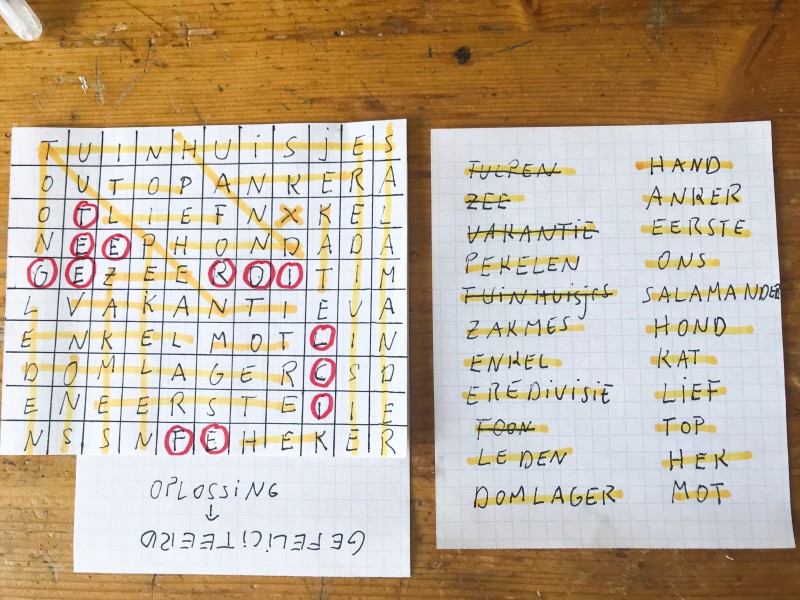 T U I N H U i S j E S
O U T O P A N K E R A
O T L I E F N X K E L
N E E P H O N D A D A
G E Z E E R D I T I M
L V A K A N T I E V A
E N K E L M O T L I N
D O M L A G E R C S D
E N E E R S T E I I E
N S S N F E H E K E R
OPLOSSING
↓
GEFELICITEERD
TULPEN
ZEE
VAKANTIE
PEKELEN
TUINHUISJES
ZAKMES
ENKEL
EREDIVISIE
TOON
LEDEN
DOMLAGER
HAND
ANKER
EERSTE
ONS
SALAMANDER
HOND
KAT
LIEF
TOP
HEK
MOT